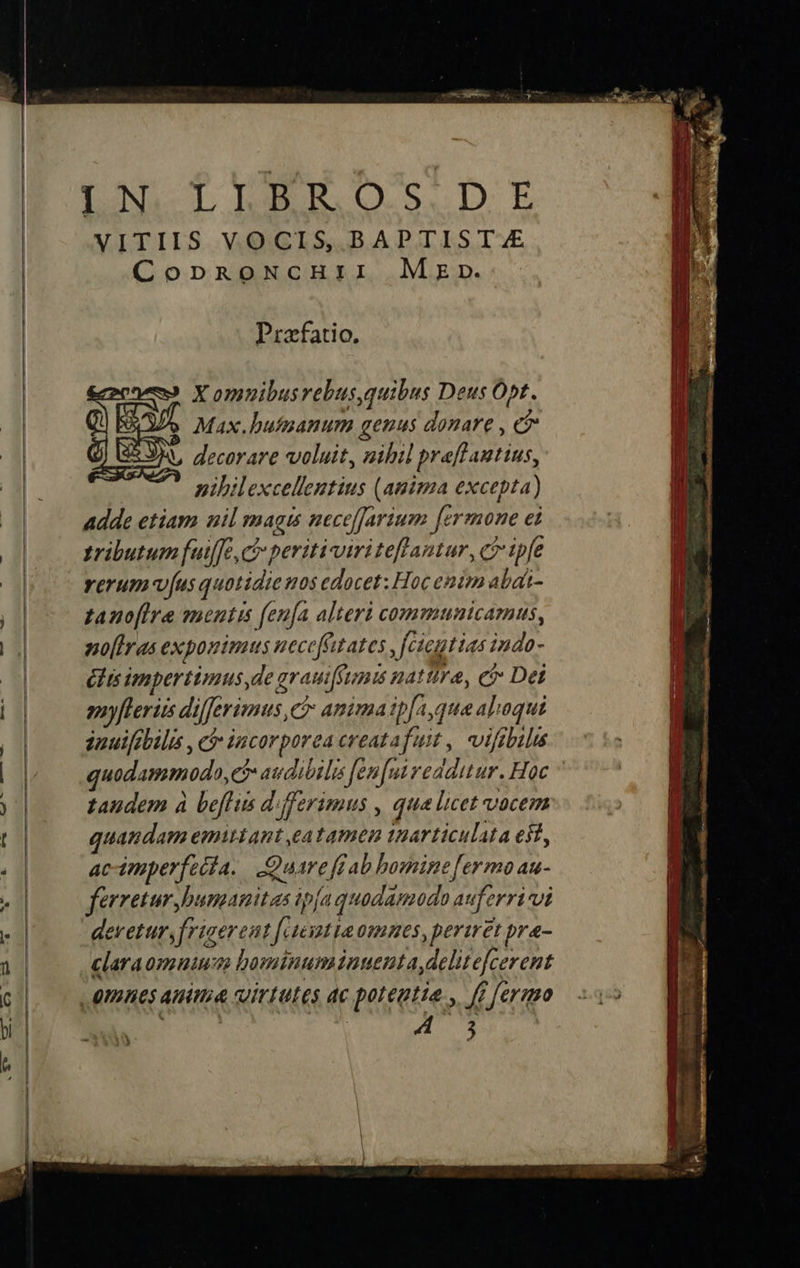 IN LIBROS DE
VITIIS VOCIS, BAPTISTÆ
CODRONCHII MED.
Præfatio.
EX omnibus rebus, quibus Deus Opt.
Max. humanum genus donare, &
decorare voluit, nihil præstantius,
nihil excellentius (anima excepta)
adde etiam nil magis necessarium sermone ei
tributum fuisse, & periti viri testantur, & ipse
rerum vsus quotidie nos edocet: Hoc enim abdi-
ta nostræ mentis sensa alteri communicamus,
nostras exponimus necessitates, scientias indo-
ctis impertimus, de grauissimis natura, & Dei
mysteriis disserimus, & anima ipsa, quæ alioqui
inuisibilis, & incorporea creata fuit, visibilis
quodammodo, & audibilis sensui redditur. Hoc
tandem à bestiis differimus, quæ licet vocem
quandam emittant, ea tamen inarticulata est,
ac imperfecta. Quare si ab homine sermo au-
ferretur, humanitas ipsa quodāmodo auferri vi
deretur, frigerent scientiæ omnes, perirēt præ-
clara omnium hominum inuenta, delitescerent
omnes animæ virtutes ac potentiæ, si sermo
A 3